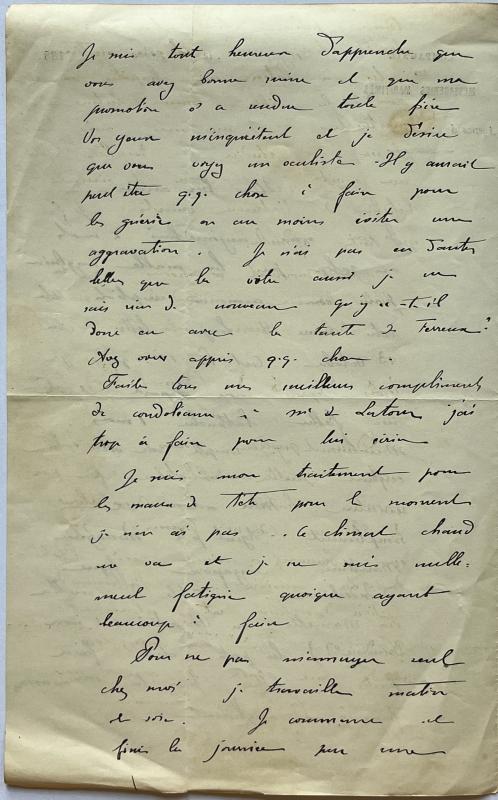 Je suis tout heureux d'apprendre que
vous avez bonne mine et que ma
promotion vs a rendue toute fière
Vos yeux m'inquiètent et je désire
que vous voyez un oculiste - Il y aurait
peut être q.q. chose à faire pour
les guérir ou au moins éviter une
aggravation. Je n'ai pas eu d'autres
lettres que la vôtre aussi je ne
sais rien de nouveau qu'y a-t-il
donc eu avec la tante de ?
Avez vous appris q.q. chose.
Faites tous mes meilleurs compliments
de condoléances à Mr de Latour j'ai
trop à faire pour lui écrire
Je suis mon traitement pour
les maux de tête pour le moment
je n'en ai pas .. Le climat chaud
me va et je ne suis nulle-
ment fatigué quoique ayant
beaucoup à faire
Pour ne pas m'ennuyer seul
chez moi je travaille matin
et soir. Je commence et
finis la journée par une